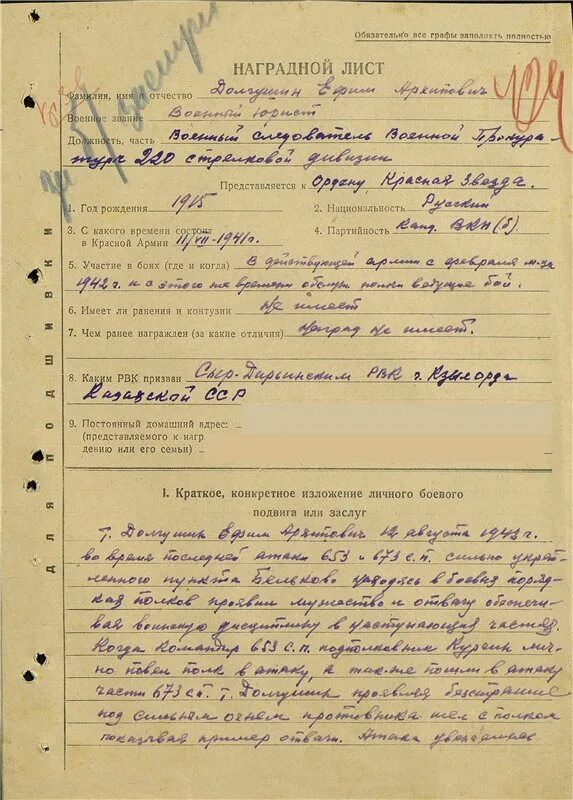 Обязательно все графы заполнять полностью
НАГРАДНОЙ ЛИСТ
Фамилия, имя и отчество Долгушин Ефим Архипович
Военное звание Военный юрист
Должность, часть Военный следователь Военной Прокура-
туры 220 стрелковой дивизии
Представляется к Ордену „Красная Звезда".
1. Год рождения 1915 2. Национальность Русский
3. С какого времени состоит
в Красной Армии 11/VII-1941г. 4. Партийность Канд. ВКП(б)
5. Участие в боях (где и когда) В действующей армии с февраля м-ца
1942 г. и с этого же времени полки ведущие бой.
6. Имеет ли ранения и контузии Не имеет
7. Чем ранее награжден (за какие отличия) Наград не имеет.
8. Каким РВК призван Сыр-Дарьинским РВК г. Кзылорда
Казахской ССР
9. Постоянный домашний адрес:
(представляемого к наг
дению или его семьи)
I. Краткое, конкретное изложение личного боевого
подвига или заслуг
Т. Долгушин Ефим Архипович 12 августа 1943 г.
во время последней атаки 653 и 673 с.п. сильно укреп-
ленного пункта Бельково находясь в боевых поряд-
ках полков проявил мужество и отвагу обеспечи-
вая воинскую дисциплину в наступающих частях.
Когда командир 653 с.п. подполковник лич-
но повел полк в атаку, а так-же пошли в атаку
части 673 сп. т. Долгушин проявляя бесстрашие
под сильным огнем противника шел с полком
показывая пример отваги. Атака увенчалась
ДЛЯ ПОДШИВКИ